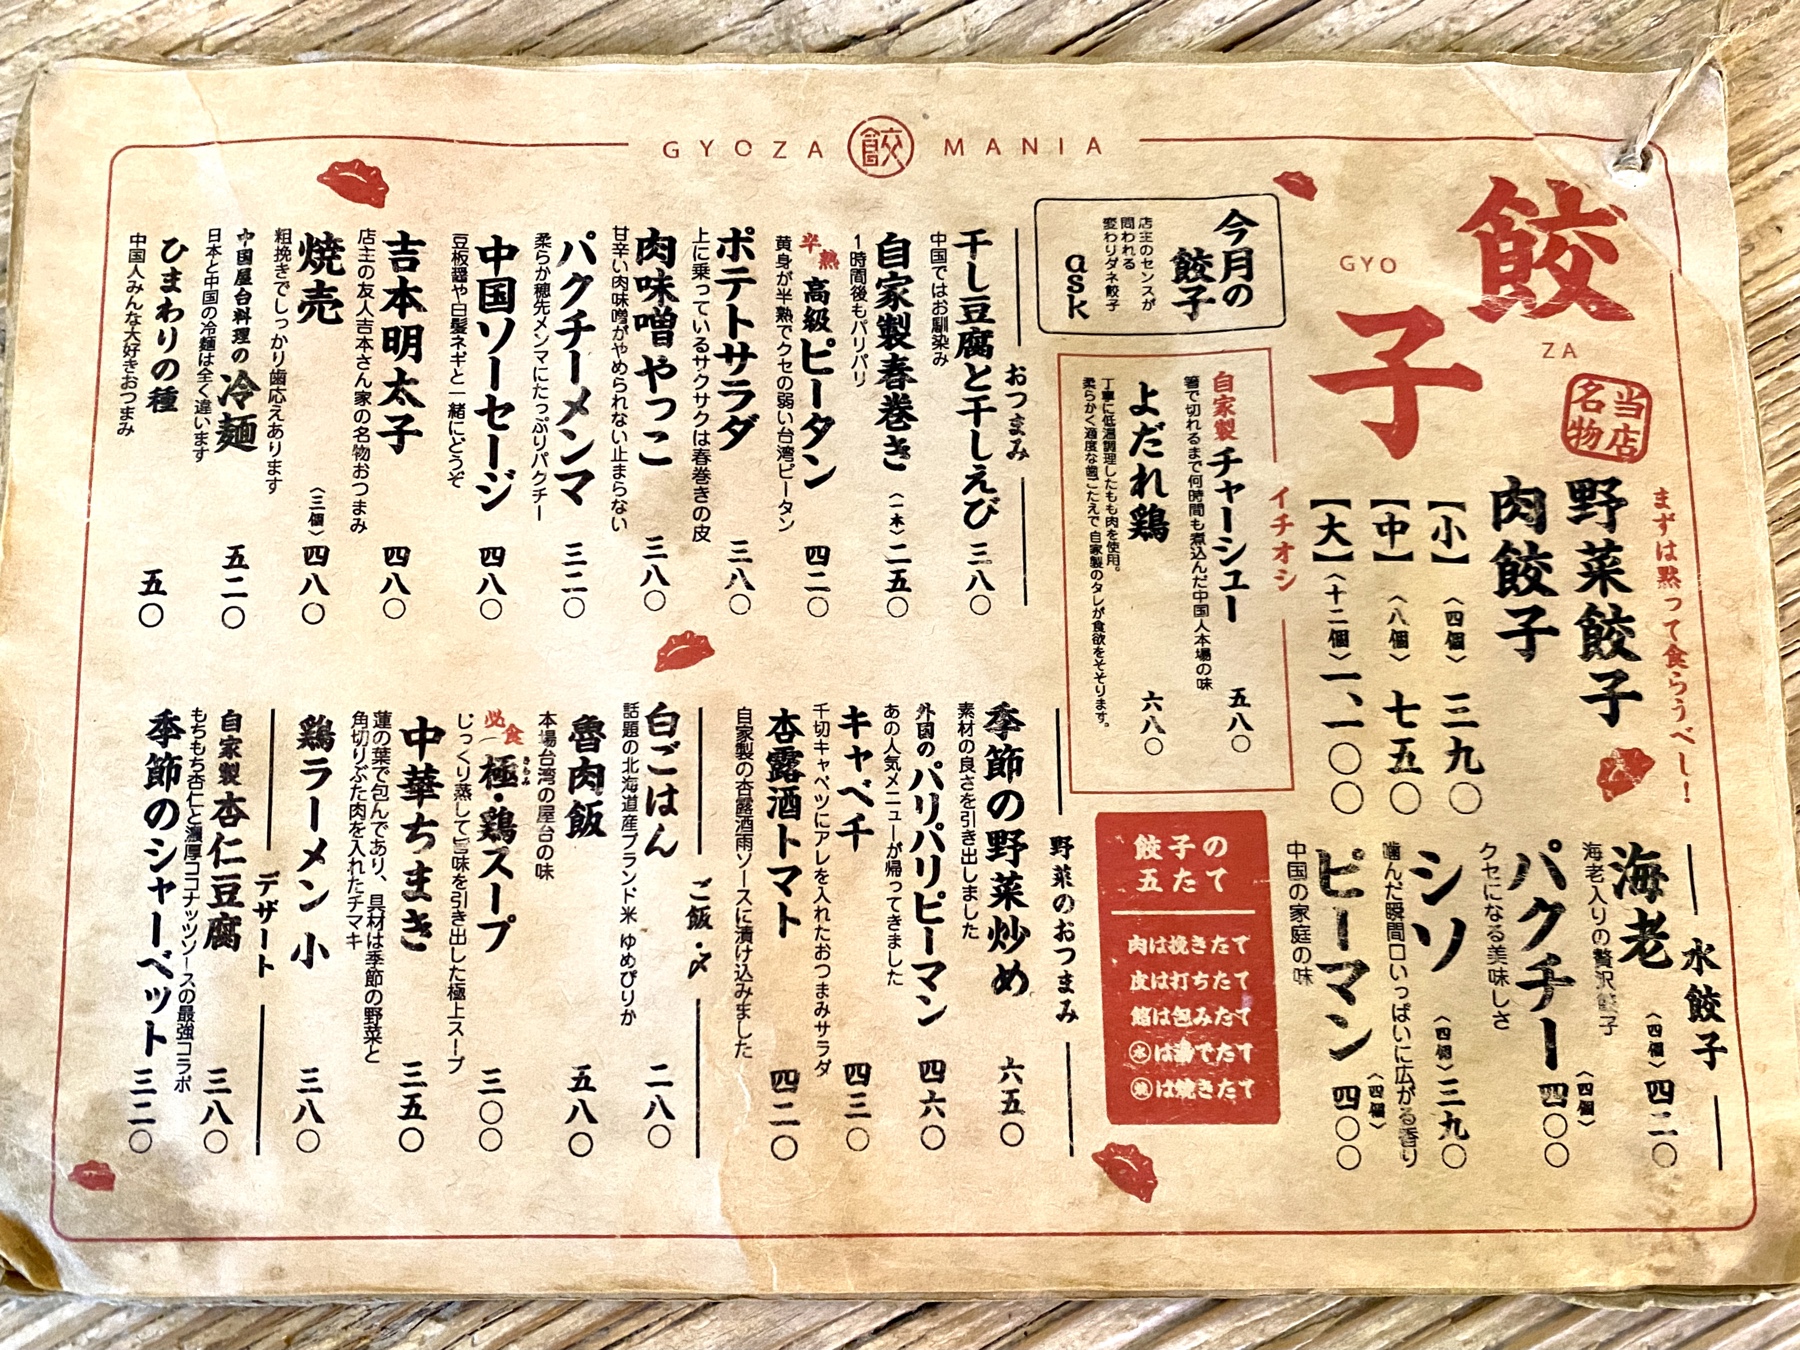 GYOZA 餃 MANIA
餃子
GYO
ZA
当店名物
まずは黙って食らうべし!
野菜餃子
肉餃子
【小】〈四個〉三九〇
【中】〈八個〉七五〇
【大】〈十二個〉一、一〇〇
水餃子
海老〈四個〉四二〇
海老入りの贅沢餃子
パクチー〈四個〉四〇〇
クセになる美味しさ
シソ〈四個〉三九〇
噛んだ瞬間口いっぱいに広がる香り
ピーマン〈四個〉四〇〇
中国の家庭の味
今月の
餃子
店主のセンスが
問われる
変わりダネ餃子
ask
イチオシ
自家製チャーシュー 五八〇
箸で切れるまで何時間も煮込んだ中国人本場の味
よだれ鶏 六八〇
丁寧に低温調理したもも肉を使用。
柔らかく適度な歯ごたえで自家製のタレが食欲をそそります。
餃子の
五たて
肉は挽きたて
皮は打ちたて
餡は包みたて
水は茹でたて
焼は焼きたて
おつまみ
干し豆腐と干しえび 三八〇
中国ではお馴染み
自家製春巻き〈一本〉二五〇
1時間後もパリパリ
半熟 高級ピータン 四二〇
黄身が半熟でクセの弱い台湾ピータン
ポテトサラダ 三八〇
上に乗っているサクサクは春巻きの皮
肉味噌やっこ 三八〇
甘辛い肉味噌がやめられない止まらない
パクチーメンマ 三二〇
柔らか穂先メンマにたっぷりパクチー
中国ソーセージ 四八〇
豆板醤や白髪ネギと一緒にどうぞ
吉本明太子 四八〇
店主の友人吉本さん家の名物おつまみ
焼売〈三個〉四八〇
粗挽きでしっかり歯応えあります
中国屋台料理の冷麺 五二〇
日本と中国の冷麺は全く違います
ひまわりの種 五〇
中国人みんな大好きおつまみ
野菜のおつまみ
季節の野菜炒め 六五〇
素材の良さを引き出しました
外国のパリパリピーマン 四六〇
あの人気メニューが帰ってきました
キャベチ 四三〇
千切キャベツにアレを入れたおつまみサラダ
杏露酒トマト 四二〇
自家製の杏露酒雨ソースに漬け込みました
ご飯・〆
白ごはん 二八〇
話題の北海道産ブランド米 ゆめぴりか
魯肉飯 五八〇
本場台湾の屋台の味
必食 極・鶏スープ 三〇〇
きわみ
じっくり蒸して旨味を引き出した極上スープ
中華ちまき 三五〇
蓮の葉で包んであり、具材は季節の野菜と
角切りぶた肉を入れたチマキ
鶏ラーメン 小 三八〇
デザート
自家製杏仁豆腐 三八〇
もちもち杏仁と濃厚ココナッツソースの最強コラボ
季節のシャーベット 三二〇